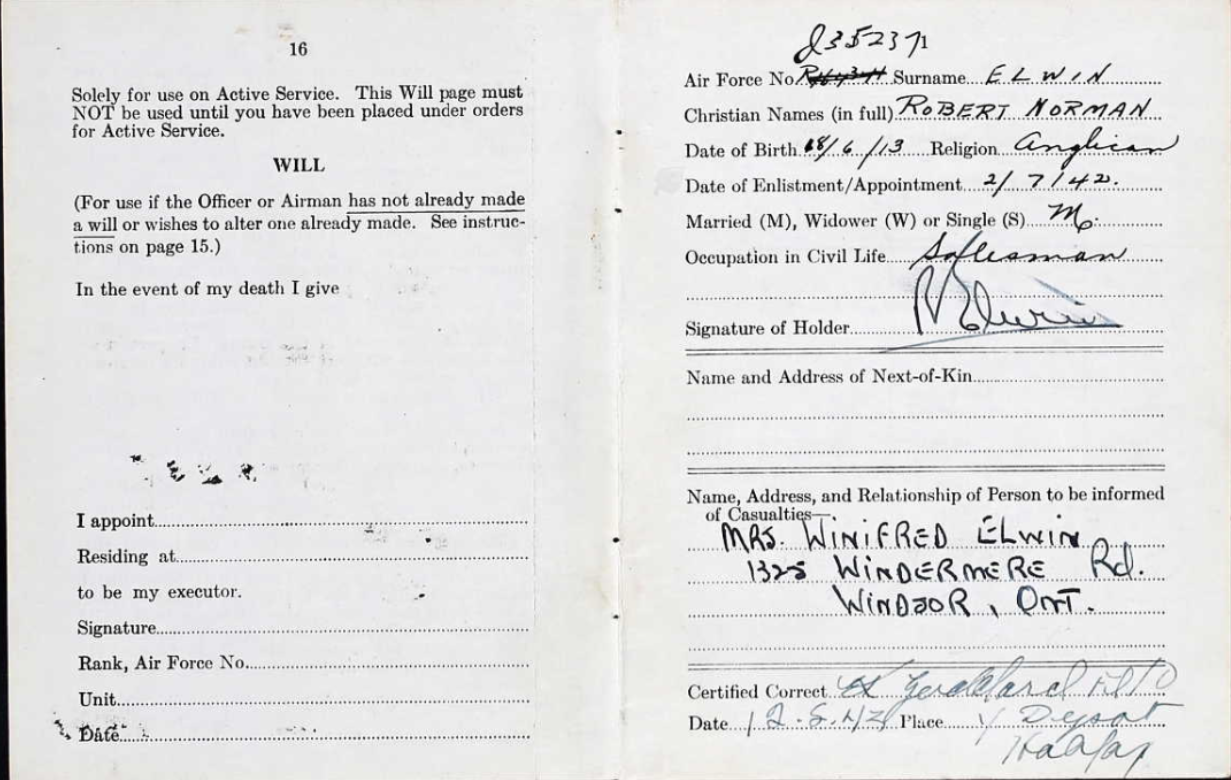 16
Solely for use on Active Service. This Will page must
NOT be used until you have been placed under orders
for Active Service.
WILL
(For use if the Officer or Airman has not already made
a will or wishes to alter one already made. See instruc-
tions on page 15.)
In the event of my death I give
I appoint
Residing at
to be my executor.
Signature
Rank, Air Force No.
Unit
Date
J35237
Air Force No. Surname ELWIN
Christian Names (in full) ROBERT NORMAN
Date of Birth 18/6/13 Religion Anglican
Date of Enlistment/Appointment 2/7/42.
Married (M), Widower (W) or Single (S) M.
Occupation in Civil Life Salesman
Signature of Holder RElwin
Name and Address of Next-of-Kin
Name, Address, and Relationship of Person to be informed
of Casualties—
MRS. WINIFRED ELWIN
1325 WINDERMERE Rd.
WINDSOR, ONT.
Certified Correct
Date Place Y Depot
Halifax